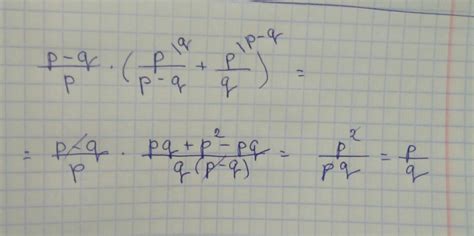 \frac{p-q}{p} \cdot \left( \frac{p^{\backslash q}}{p-q} + \frac{p^{\backslash p-q}}{q} \right) =
= \frac{p-q}{p} \cdot \frac{pq+p^2-pq}{q(p-q)} = \frac{p^2}{pq} = \frac{p}{q}